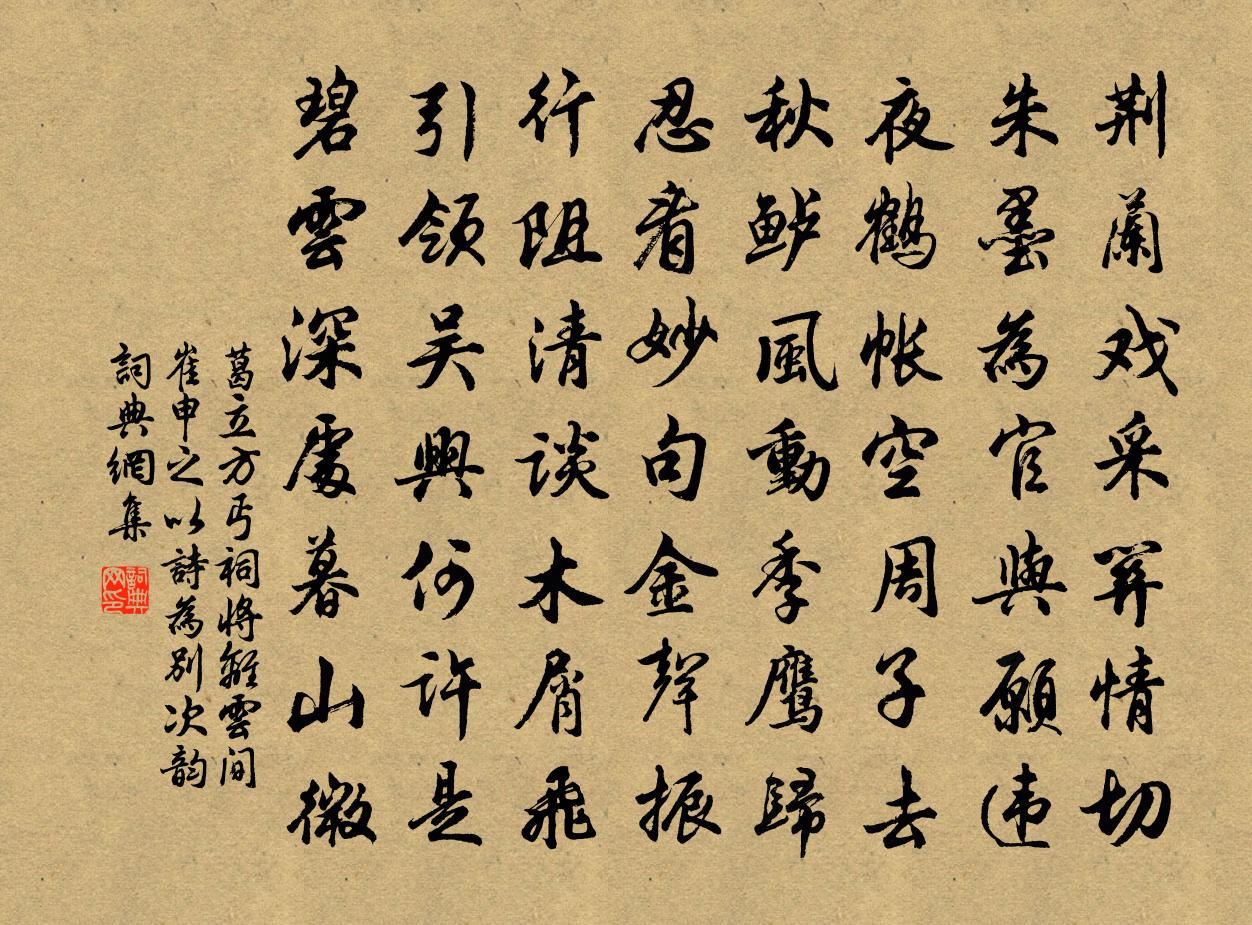 荆蘭戏采羿情切
朱墨為官與願违
夜鶴帐空周子去
秋鲈風動季鹰歸
忍看妙句金聲振
行阻清談木屑飛
引领吴興何许是
碧雲深處暮山微
葛立方丐祠將離雲间
崔申之以詩為别次韵
詞典網集
詞典网印